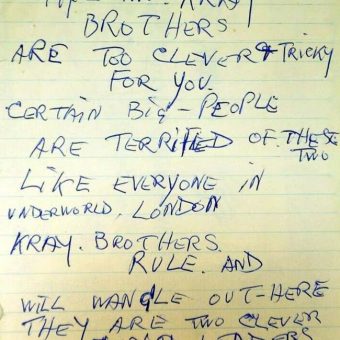 KRAY
BROTHERS
ARE TOO CLEVER & TRICKY
FOR YOU.
CERTAIN BIG-PEOPLE
ARE TERRIFIED OF. THESE
TWO
LIKE EVERYONE IN
UNDERWORLD. LONDON
KRAY. BROTHERS.
RULE. AND
WILL WANGLE OUT-HERE
THEY ARE TWO CLEVER